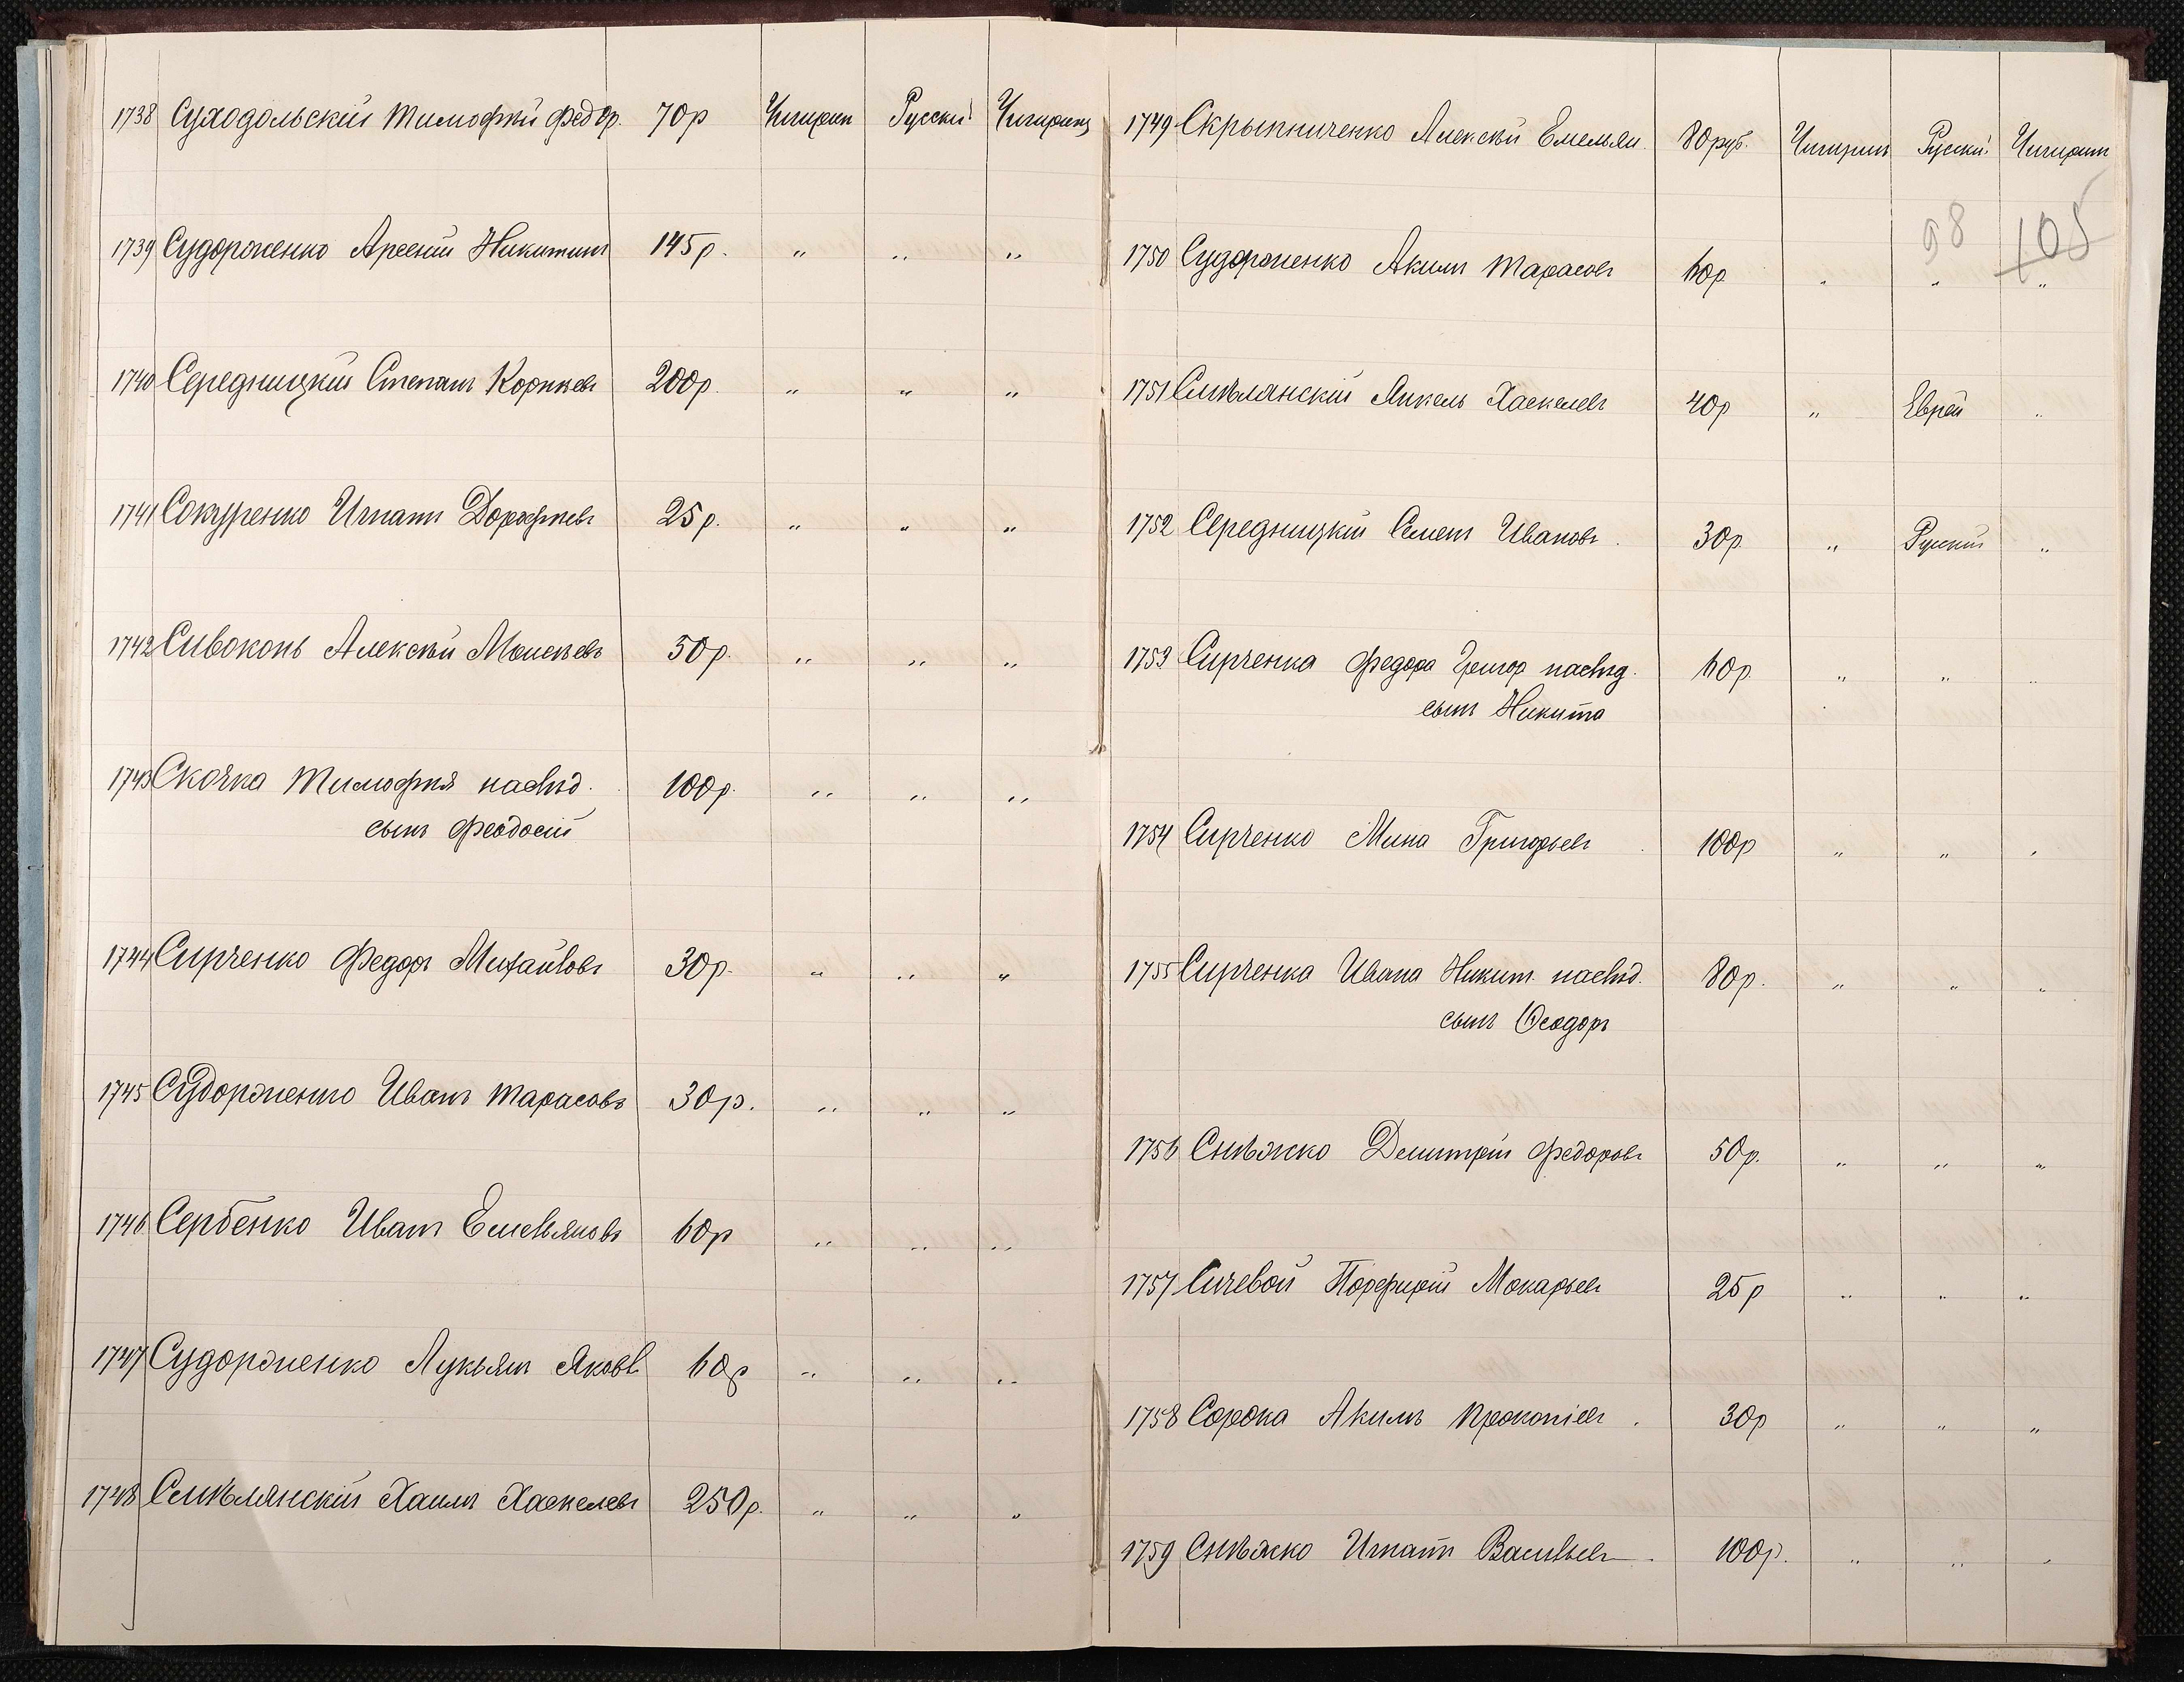 1738 Суходольскій Тимофѣй Федор. 70р Чигирин Русскій Чигиринъ
1739 Судорженко Арсеній Никитинъ 145р. " " "
1740 Середницкій Степанъ Корнѣев 200р. " " "
1741 Сокуренко Игнатъ Дорофѣевъ 25р. " " "
1742 Сивоконь Алексѣй Моисѣевъ 50р. " " "
1743 Скочка Тимофѣя наслѣд. 100р. " " "
сынъ Феодосій
1744 Сирченко Федоръ Михайловъ 30р. " " "
1745 Судорженко Иванъ Тарасовъ 30р. " " "
1746 Сербенко Иванъ Емельяновъ 60р " " "
1747 Судорженко Лукьянъ Яковл 60р " " "
1748 Смѣлянскій Хаимъ Хаскелевъ 250р. " " "
1749 Скрыпниченко Алексѣй Емельян. 80руб. Чигиринъ Русскій Чигирин
98 105
1750 Судорженко Акимъ Тарасовъ 60р " " "
1751 Смѣлянскій Янкель Хаскелевъ 40р " Еврей "
1752 Середницкій Семенъ Ивановъ. 30р. " Русскій "
1753 Сирченка Федора Григор наслѣд. 60р. " " "
сынъ Никита
1754 Сирченко Мина Григорьев 100р " " "
1755 Сирченка Ивана Никит. наслѣд. 80р. " " "
сынъ Ѳеодоръ
1756 Снѣжко Демитрій Федоровъ 50р. " " "
1757 Сичевой Порфирій Макарьев 25р " " "
1758 Сорока Акимъ Прокопіев. 30р " " "
1759 Снѣжко Игнатъ Васильев. 100р. " " "